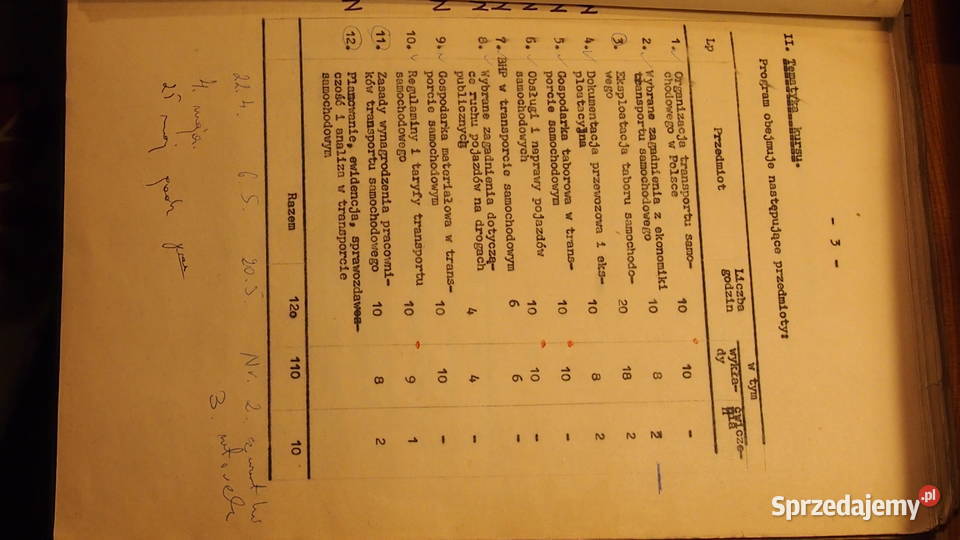 - 3 -
II. Tematyka kursu.
Program obejmuje następujące przedmioty:
Lp Przedmiot Liczba godzin w tym
wykła- ćwicze-
dy nia
1. Organizacja transportu samo-
chodowego w Polsce 10 10 -
2. Wybrane zagadnienia z ekonomiki
transportu samochodowego 10 8 2
3. Eksploatacja taboru samochodo-
wego 20 18 2
4. Dokumentacja przewozowa i eks-
ploatacyjna 10 8 2
5. Gospodarka taborowa w trans-
porcie samochodowym 10 10 -
6. Obsługi i naprawy pojazdów
samochodowych 10 10 -
7. BHP w transporcie samochodowym 6 6 -
8. Wybrane zagadnienia dotyczą-
ce ruchu pojazdów na drogach
publicznych 4 4 -
9. Gospodarka materiałowa w trans-
porcie samochodowym 10 10 -
10. Regulaminy i taryfy transportu
samochodowego 10 9 1
11. Zasady wynagrodzenia pracowni-
ków transportu samochodowego 10 8 2
12. Planowanie, ewidencja, sprawozdaw-
czość i analiza w transporcie
samochodowym
Razem 120 110 10
22.4. 6.5. 20.5 Nr. 2.
4. maja
25 maj
Sprzedajemy.pl